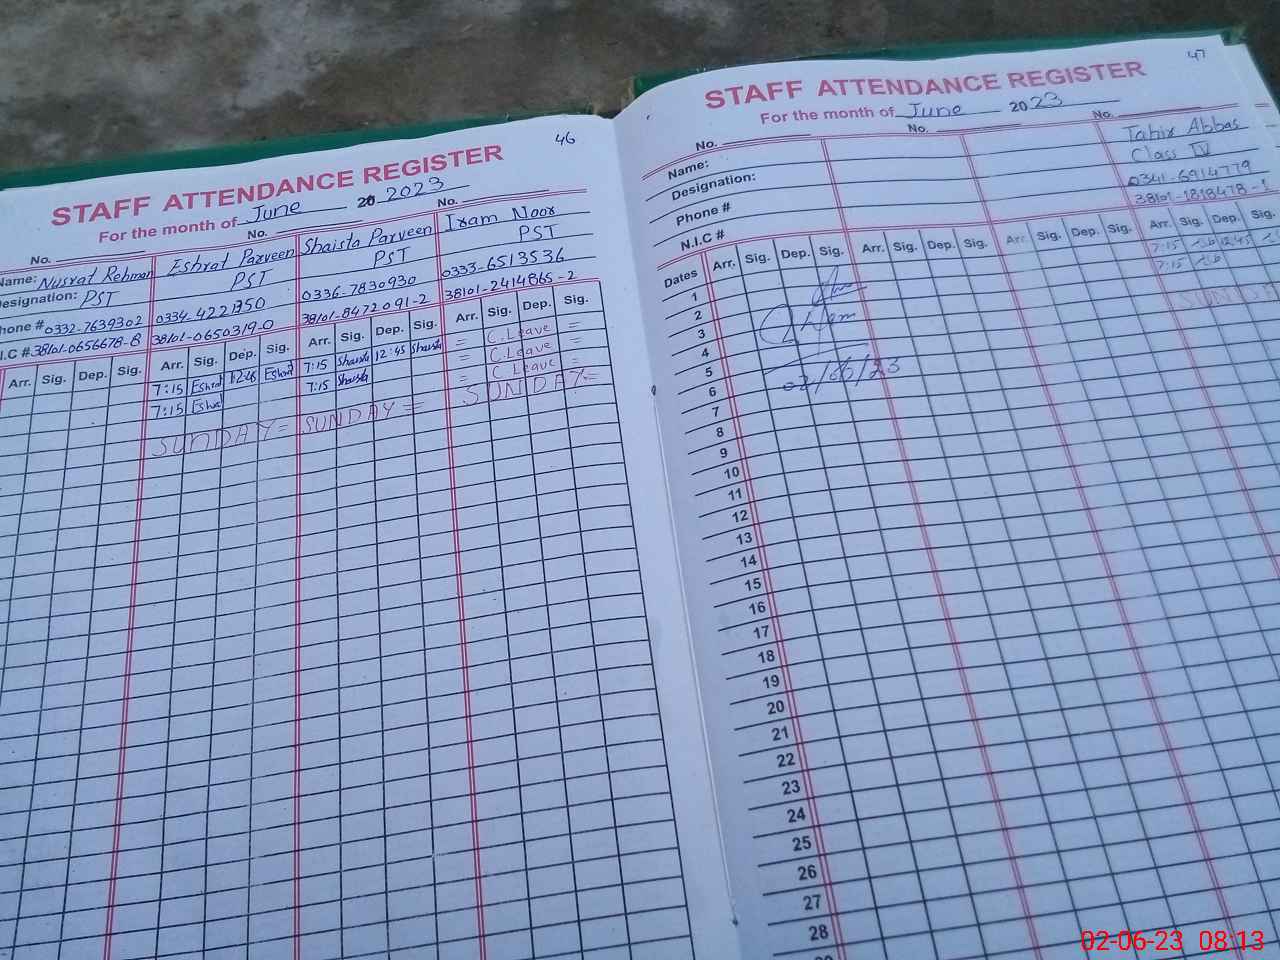 46
STAFF ATTENDANCE REGISTER
For the month of June 20 2023
No. No. No.
Name: Nusrat Rehman Eshrat Parveen Shaista Parveen Iram Noor
Designation: PST PST PST PST
Phone # 0332-7639302 0334-4221950 0336-7830930 0333-6513536
N.I.C # 38101-0656678-8 38101-0650319-0 38101-8472091-2 38101-2414865-2
Arr. Sig. Dep. Sig. Arr. Sig. Dep. Sig. Arr. Sig. Dep. Sig. Arr. Sig. Dep. Sig.
7:15 Eshrat 12:45 Eshrat 7:15 Shaista 12:45 Shaista = C.Leave =
7:15 Eshrat 7:15 Shaista = C.Leave =
= C Leave =
SUNDAY = SUNDAY = SUNDAY =
47
STAFF ATTENDANCE REGISTER
For the month of June 2023
No. No. No.
Name: Tahir Abbas
Designation: Class IV
Phone # 0341-6914779
N.I.C # 38101-1818478-1
Dates Arr. Sig. Dep. Sig. Arr. Sig. Dep. Sig. Arr. Sig. Dep. Sig. Arr. Sig. Dep.
1 7:15 12:45
2 7:15
3
4 SUNDAY
5
6 02/06/23
7
8
9
10
11
12
13
14
15
16
17
18
19
20
21
22
23
24
25
26
27
28
02-06-23 08:13